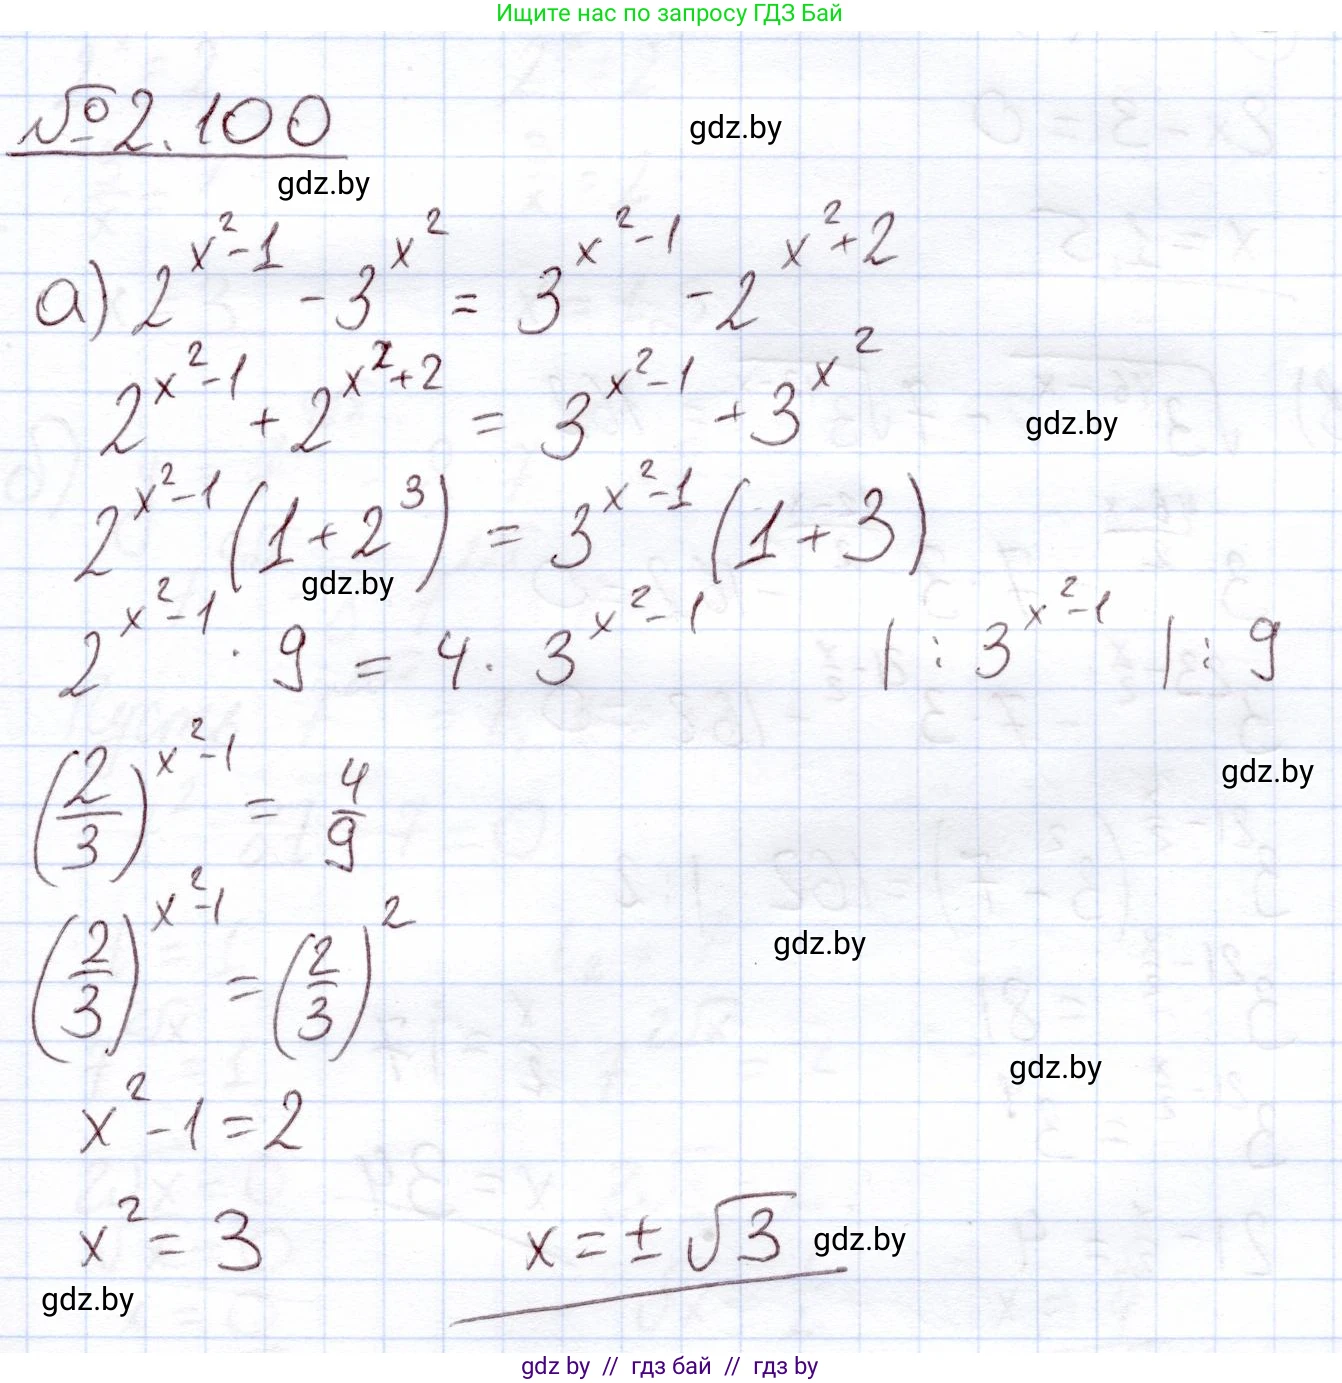 Ищите нас по запросу ГДЗ Бай
№ 2.100
gdz.by
gdz.by
а) 2^{x^2-1} - 3^{x^2} = 3^{x^2-1} - 2^{x^2+2}
2^{x^2-1} + 2^{x^2+2} = 3^{x^2-1} + 3^{x^2}
gdz.by
2^{x^2-1} (1 + 2^3) = 3^{x^2-1} (1 + 3)
gdz.by
2^{x^2-1} · 9 = 4 · 3^{x^2-1} | : 3^{x^2-1} | : 9
(2/3)^{x^2-1} = 4/9
gdz.by
(2/3)^{x^2-1} = (2/3)^2
gdz.by
gdz.by
x^2 - 1 = 2
x^2 = 3 x = ± √3
gdz.by
gdz.by
gdz by // гдз бай // гдз by